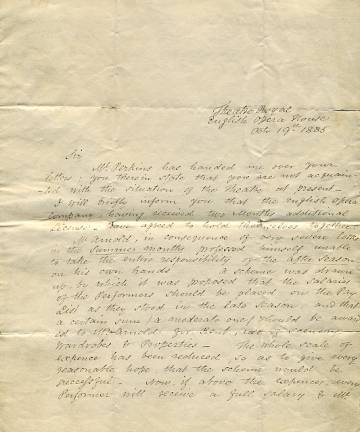 Theatre Royal
English Opera House
Octr 19th 1835
Sir
Mr. Perkins has handed me over your
letter; you therein state that you are not acquain-
-ted with the situation of the Theatre at present -
I will briefly inform you that the English Opera
Company, having received two Months additional
License - have agreed to hold themselves together.
Mr Arnold, in consequence of very severe losses
the Summer months professed himself unable
to take the entire responsibility of the after Season
on his own hands a scheme was drawn
up, by which it was proposed that the Salaries
of the Performers should be placed on the
List as they stood in the late Season, and that
a certain sum (a moderate one) should be award
ed to Mr Arnold for Rent, use of Scenery
Wardrobes & Properties - The whole scale of
expence has been reduced, so as to give every
reasonable hope that the scheme would be
successful - Now, if above the expences, every
Performer will receive a full salary & Mr